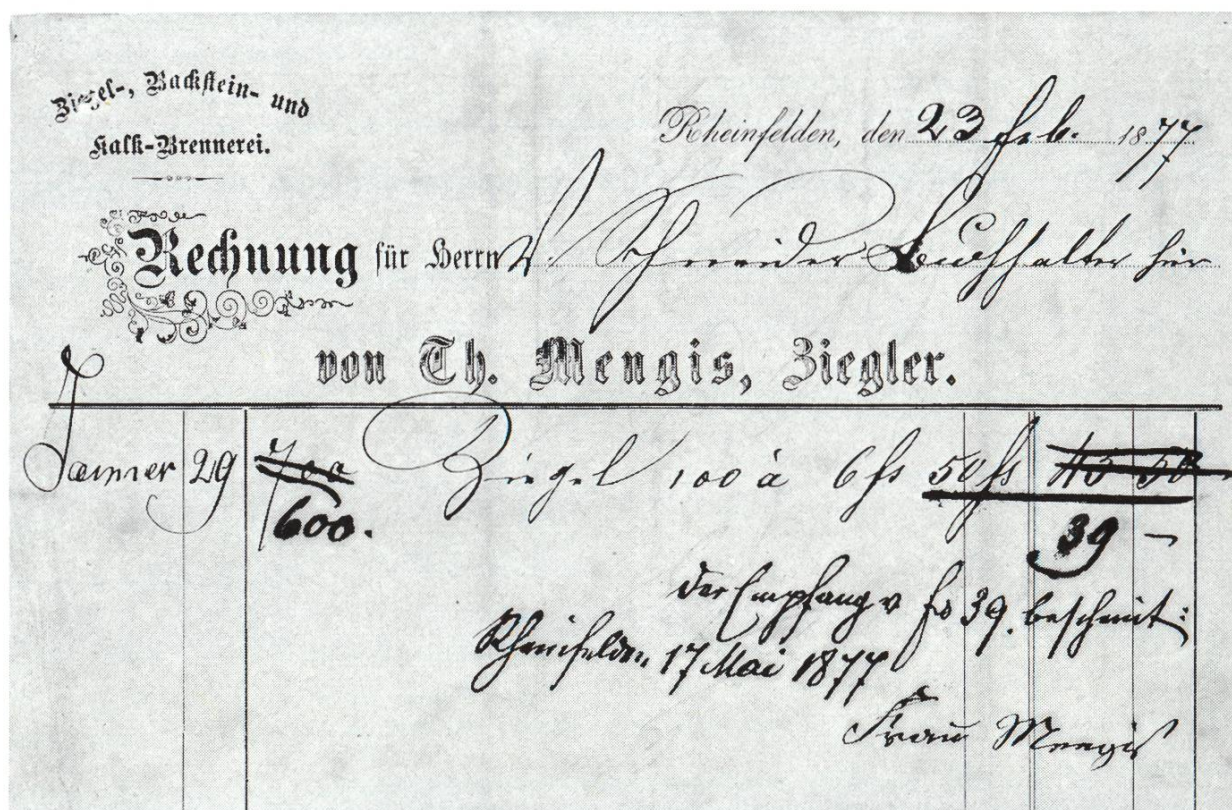 Ziegel-, Backstein- und
Kalk-Brennerei.
Rheinfelden, den 23 Feb. 1877
Rechnung für Herrn V. Schneider Buchhalter hier
von Th. Mengis, Ziegler.
Jänner 29 700 Ziegel 100 à 6 fs 50 fs 45 50
600. 39 –
Der Empfang v fs 39. bescheint:
Rheinfelden 17 Mai 1877
Frau Mengis